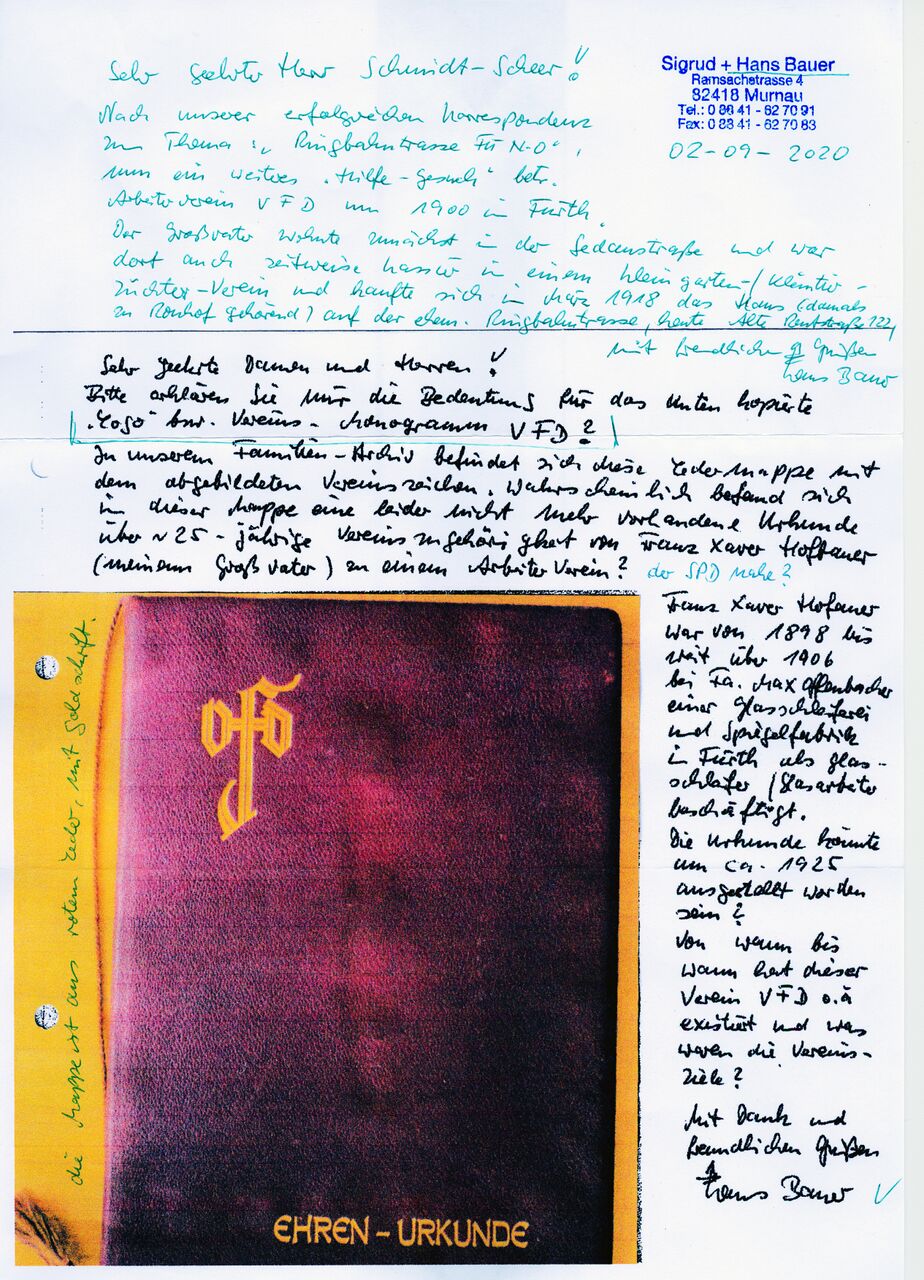 Sehr geehrter Herr Schmidt-Scheer!
Sigrud + Hans Bauer
Ramsachstrasse 4
82418 Murnau
Tel.: 0 88 41 - 62 70 91
Fax: 0 88 41 - 62 70 83
02-09-2020
Nach unserer erfolgreichen Korrespondenz
zum Thema: „Ringbahntrasse Fü N-O",
nun ein weiteres „Hilfe-Gesuch" betr.
Arbeiterverein VFD um 1900 in Fürth.
Der Großvater wohnte zunächst in der Sedanstraße und war
dort auch zeitweise Kassier in einem Kleingarten-/Kleintier-
züchter-Verein und kaufte sich im März 1918 das Haus (damals
zu Ronhof gehörend) auf der ehem. Ringbahntrasse, heute Alte Reutstraße 122,
mit freundlichen Grüßen
Hans Bauer
Sehr geehrte Damen und Herren!
Bitte erklären Sie mir die Bedeutung für das unten kopierte
„Logo" bzw. Vereins-Monogramm VFD?
In unserem Familien-Archiv befindet sich diese Ledermappe mit
dem abgebildeten Vereinszeichen. Wahrscheinlich befand sich
in dieser Mappe eine leider nicht mehr vorhandene Urkunde
über ~25-jährige Vereinszugehörigkeit von Franz Xaver Hofbauer
(meinem Großvater) zu einem Arbeiter Verein? der SPD nahe?
die Mappe ist aus rotem Leder, mit Goldschrift.
EHREN-URKUNDE
Franz Xaver
war von 1898 bis
weit über 1906
bei Fa. Max Offenbacher
einer Glasschleiferei
und Spiegelfabrik
in Fürth als Glas-
schleifer/Glasarbeiter
beschäftigt.
Die Urkunde könnte
um ca. 1925
ausgestellt worden
sein?
Von wann bis
wann hat dieser
Verein VFD o.ä
existiert und was
waren die Vereins-
ziele?
Mit Dank und
freundlichen Grüßen
Hans Bauer